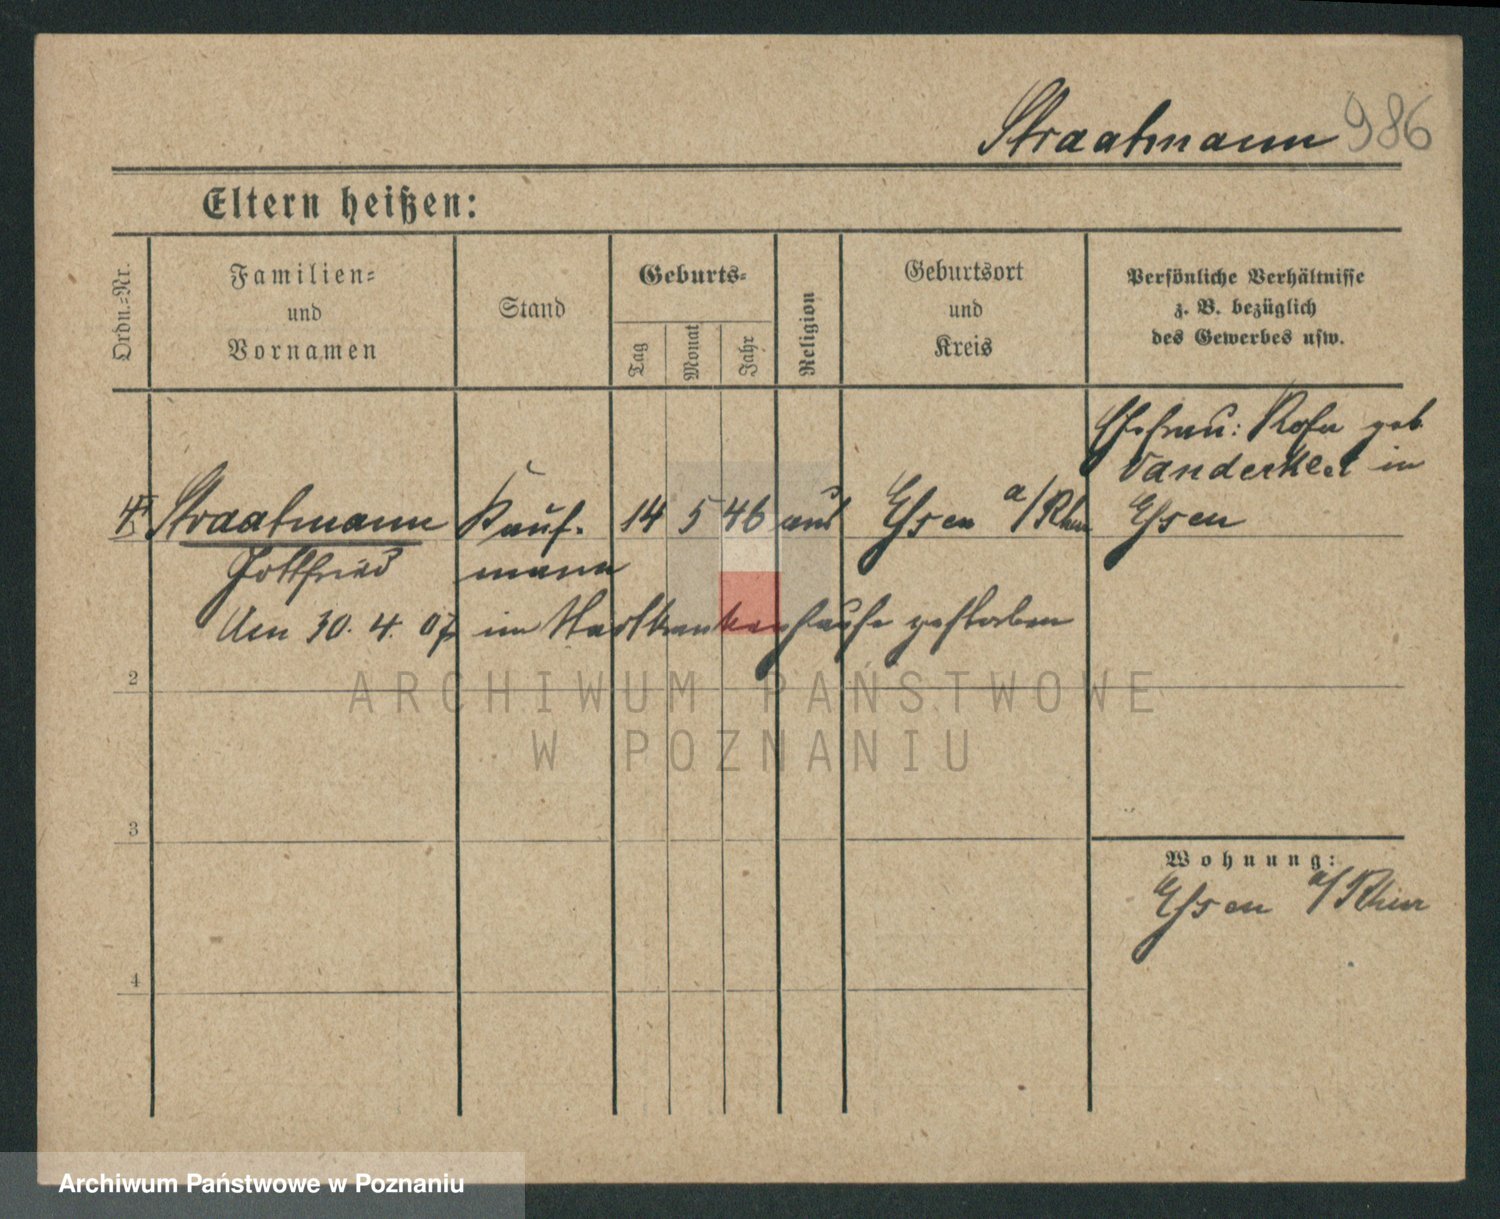 Straatmann 986
Eltern heißen:
Ordn.-Nr.
Familien-
und
Vornamen
Stand
Geburts-
Tag
Monat
Jahr
Religion
Geburtsort
und
Kreis
Persönliche Verhältnisse
z. B. bezüglich
des Gewerbes usw.
Ehefrau: Rosa geb
Vanderklei in
Essen
Straatmann
Gottfried
Kauf-
mann
14 5 46
Essen a/Rhein
Am 30. 4. 07 im Stadtkrankenhause gestorben
2
3
4
Wohnung:
Essen a/Rhein
ARCHIWUM PAŃSTWOWE
W POZNANIU
Archiwum Państwowe w Poznaniu